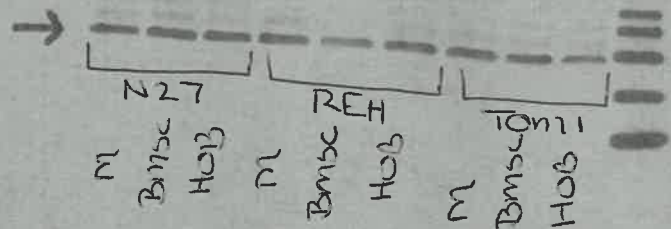 N27 REH
M BMSC HOB M BMSC HOB M BMSC HOB